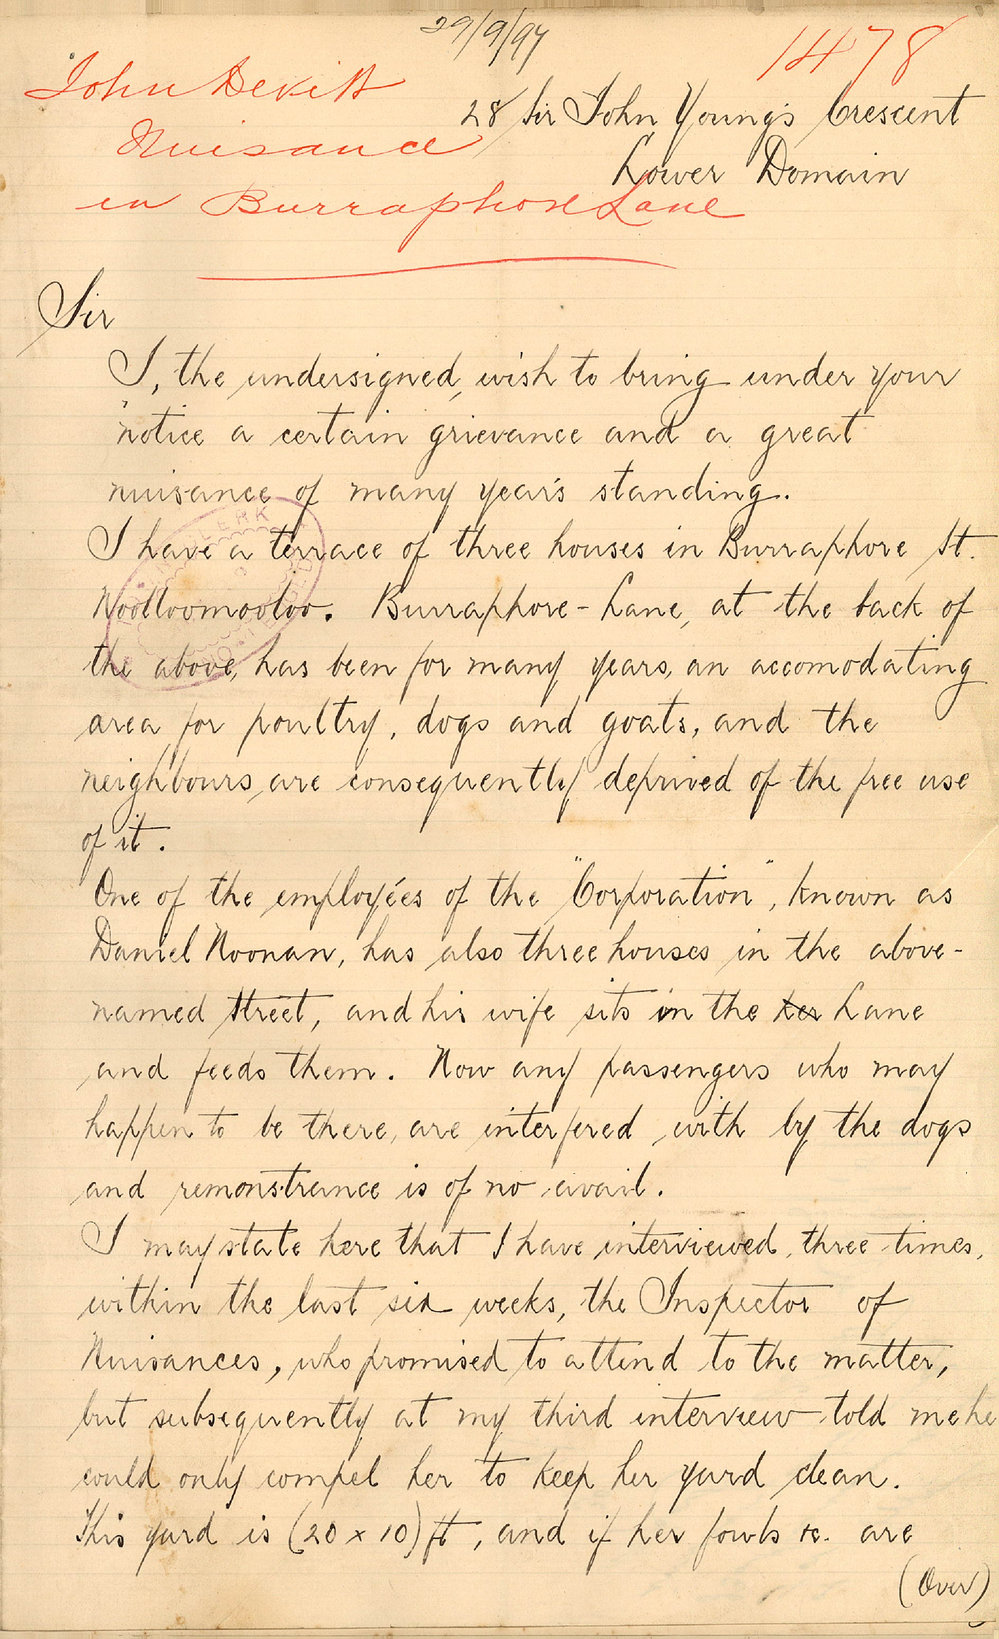 29/9/97
1478
John Devitt
Nuisance
in Burraphore Lane
28 Sir John Young's Crescent
Lower Domain
Sir
I, the undersigned, wish to bring under your
notice a certain grievance and a great
nuisance of many year's standing.
I have a terrace of three houses in Burraphore St.
Woolloomooloo. Burraphore-Lane, at the back of
the above, has been for many years, an accomodating
area for poultry, dogs and goats, and the
neighbours, are consequently deprived of the free use
of it.
One of the employées of the "Corporation", known as
Daniel Noonan, has also three houses in the above-
named Street, and his wife sits in the her Lane
and feeds them. Now any passengers who may
happen to be there, are interfered with by the dogs
and remonstrance is of no avail.
I may state here that I have interviewed, three times,
within the last six weeks, the Inspector of
Nuisances, who promised to attend to the matter,
but subsequently at my third interview told me he
could only compel her to keep her yard clean.
This yard is (20 x 10) ft, and if her fowls &c. are
(Over)